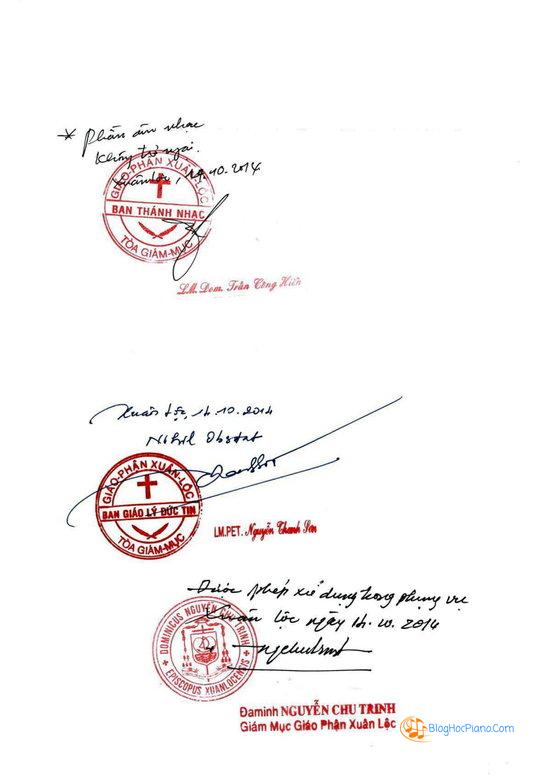 * Phần âm nhạc
không trở ngại.
Xuân Lộc, 10.2014
GIÁO-PHẬN XUÂN-LỘC
BAN THÁNH NHẠC
TÒA GIÁM-MỤC
LM. Dom. Trần Công Hiển
Xuân Lộc, 14.10.2014
Nihil Obstat
GIÁO-PHẬN XUÂN-LỘC
BAN GIÁO LÝ ĐỨC TIN
TÒA GIÁM-MỤC
LM.PET. Nguyễn Thanh Sơn
Được phép sử dụng trong phụng vụ
Xuân Lộc ngày 14.10.2014
DOMINICUS NGUYỄN CHU TRINH
EPISCOPUS XUANLOCENSIS
ngchutrinh
Đaminh NGUYỄN CHU TRINH
Giám Mục Giáo Phận Xuân Lộc
BlogHocPiano.Com